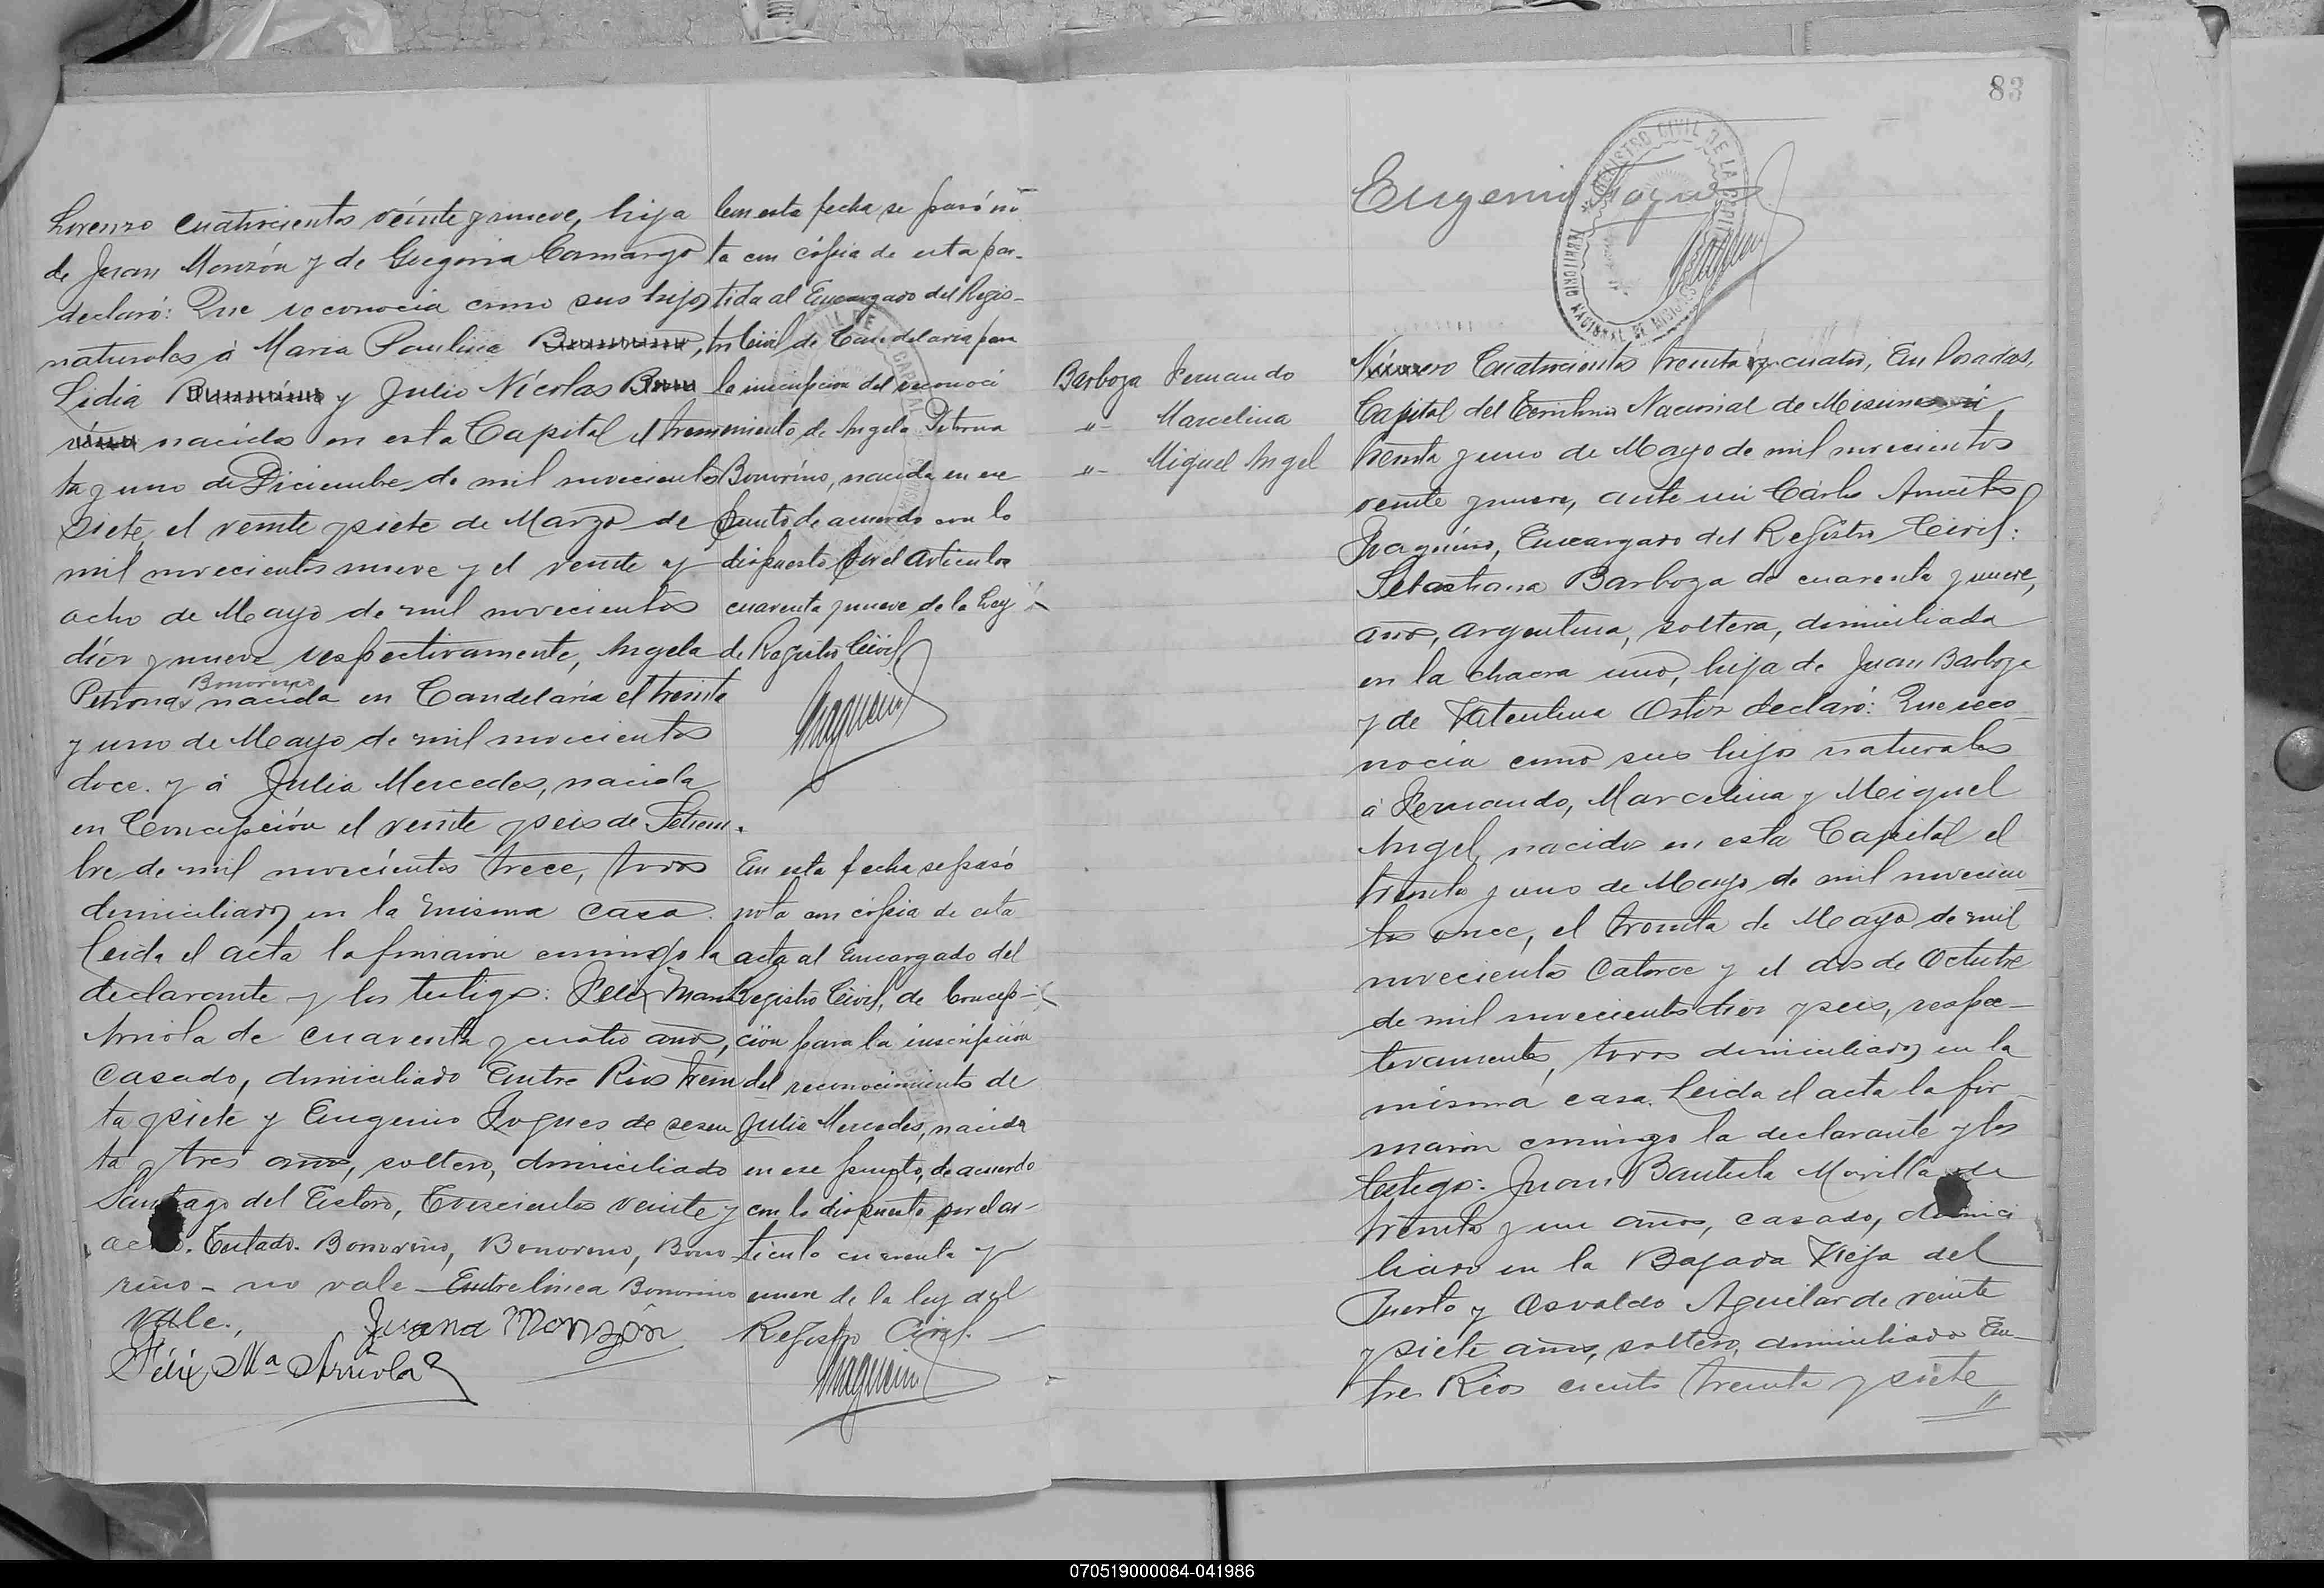 Lorenzo cuatrocientos veinte y nueve, hija
de Juan Monzón y de Gregoria Camargo
declaró: Que reconocia como sus hijos
naturales á Maria Paulina Bonorino,
Lidia Bonorino y Julio Nícolas Bono
rino nacidos en esta Capital el trein
ta y uno de Diciembre de mil novecientos
siete, el veinte y siete de Marzo de
mil novecientos nueve y el veinte y
ocho de Mayo de mil novecientos
diez y nueve respectivamente, Angela
Bonorino
Petrona nacida en Candelaria el treinta
y uno de Mayo de mil novecientos
doce. y á Julia Mercedes, nacida
en Concepción el veinte y seis de Setiem-
bre de mil novecientos trece, todos
domiciliados en la misma casa.
Leida el acta la firmaron conmigo la
declarante y los testigos: Felix Maria
Arriola de cuarenta y cuatro años,
casado, domiciliado Entre Rios trein
ta y siete y Eugenio Roques de sesen
ta y tres años, soltero, domiciliado
Santiago del Estero, trescientos veinte y
ocho. Testado. Bonorino, Bonorino, Bono
rino - no vale - Entrelinea Bonorino
vale.,
Juana Monzón
Félix Mª Arriola
En esta fecha se pasó no
ta con cópia de esta par-
tida al Encargado del Regis-
tro Civil de Candelaria para
la inscripcion del reconoci
miento de Angela Petrona
Bonorino, nacida en ese
punto de acuerdo con lo
dispuesto por el articulo
cuarenta y nueve de la Ley
de Registro Civil
En esta fecha se pasó
nota con cópia de esta
acta al Encargado del
Registro Civil, de Concep-
ción para la inscripción
del reconocimiento de
Julia Mercedes, nacida
en ese punto, de acuerdo
con lo dispuesto por el ar-
ticulo cuarenta y
nueve de la ley del
Registro Civil.
83
Eugenio Roques
REGISTRO CIVIL DE LA CAPITAL
TERRITORIO NACIONAL DE MISIONES
Barboza Fernando
-"- Marcelina
-"- Miguel Angel
Número Cuatrocientos treinta y cuatro, En Posadas,
Capital del Territorio Nacional de Misiones á
treinta y uno de Mayo de mil novecientos
veinte y nueve, ante mi Cárlos Anacleto
Izaguirre, Encargado del Registro Civil:
Sebastiana Barboza de cuarenta y nueve,
años, argentina, soltera, domiciliada
en la chacra uno, hija de Juan Barboza
y de Valentina Ortiz declaró: Que reco-
nocia como sus hijos naturales
á Fernando, Marcelina y Miguel
Angel, nacidos en esta Capital el
treinta y uno de Mayo de mil novecien-
tos once, el treinta de Mayo de mil
novecientos catorce y el dos de Octubre
de mil novecientos diez y seis, respec-
tivamente, todos domiciliados en la
misma casa. Leida el acta la fir-
maron conmigo la declarante y los
testigos: Juan Bautista Morilla de
treinta y un años, casado, domici
liado en la Bajada Vieja del
Puerto y Osvaldo Aguilar de veinte
y siete años, soltero, domiciliado En-
tre Rios ciento treinta y siete
070519000084-041986